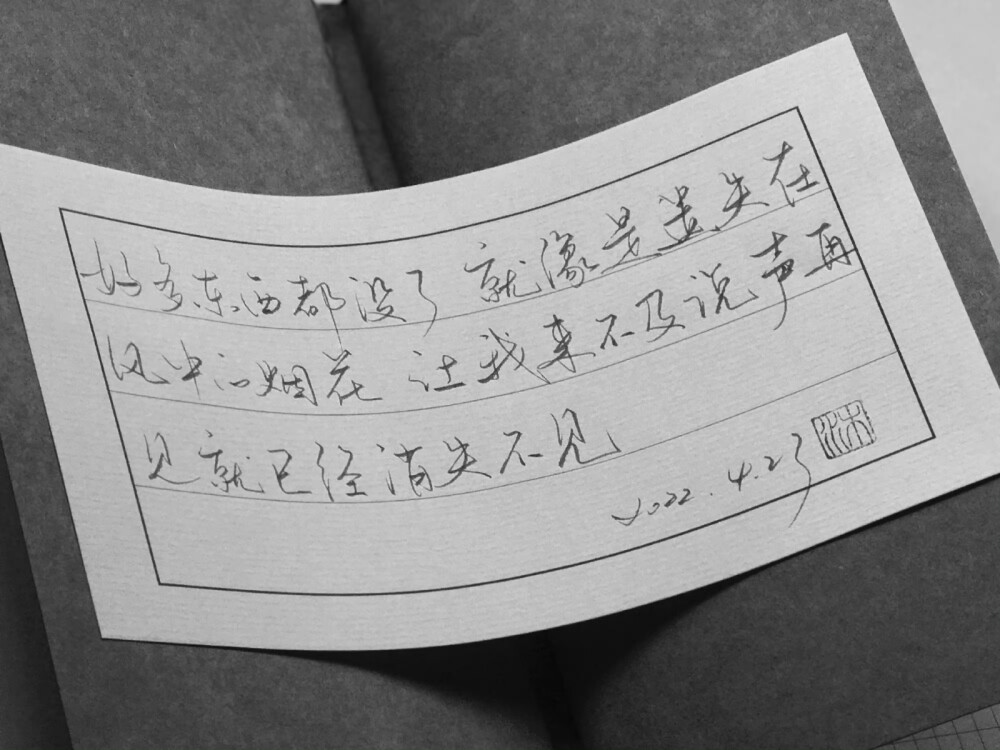 好多东西都没了 就像是遗失在
风中的烟花 让我来不及说声再
见就已经消失不见
2022.4.23